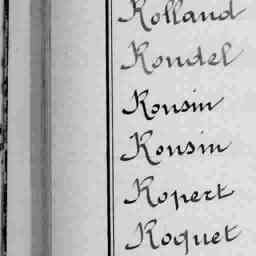 Rolland
Rondel
Ronsin
Ronsin
Ropert
Roquet